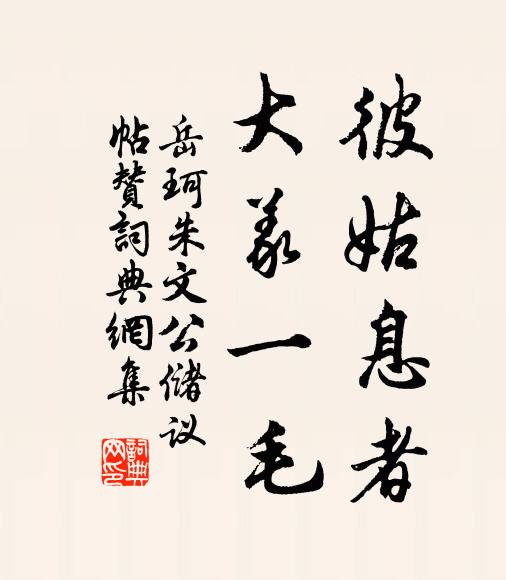 彼姑息者
大义一毛
岳珂朱文公储议
帖赞詞典網集
詞典网印